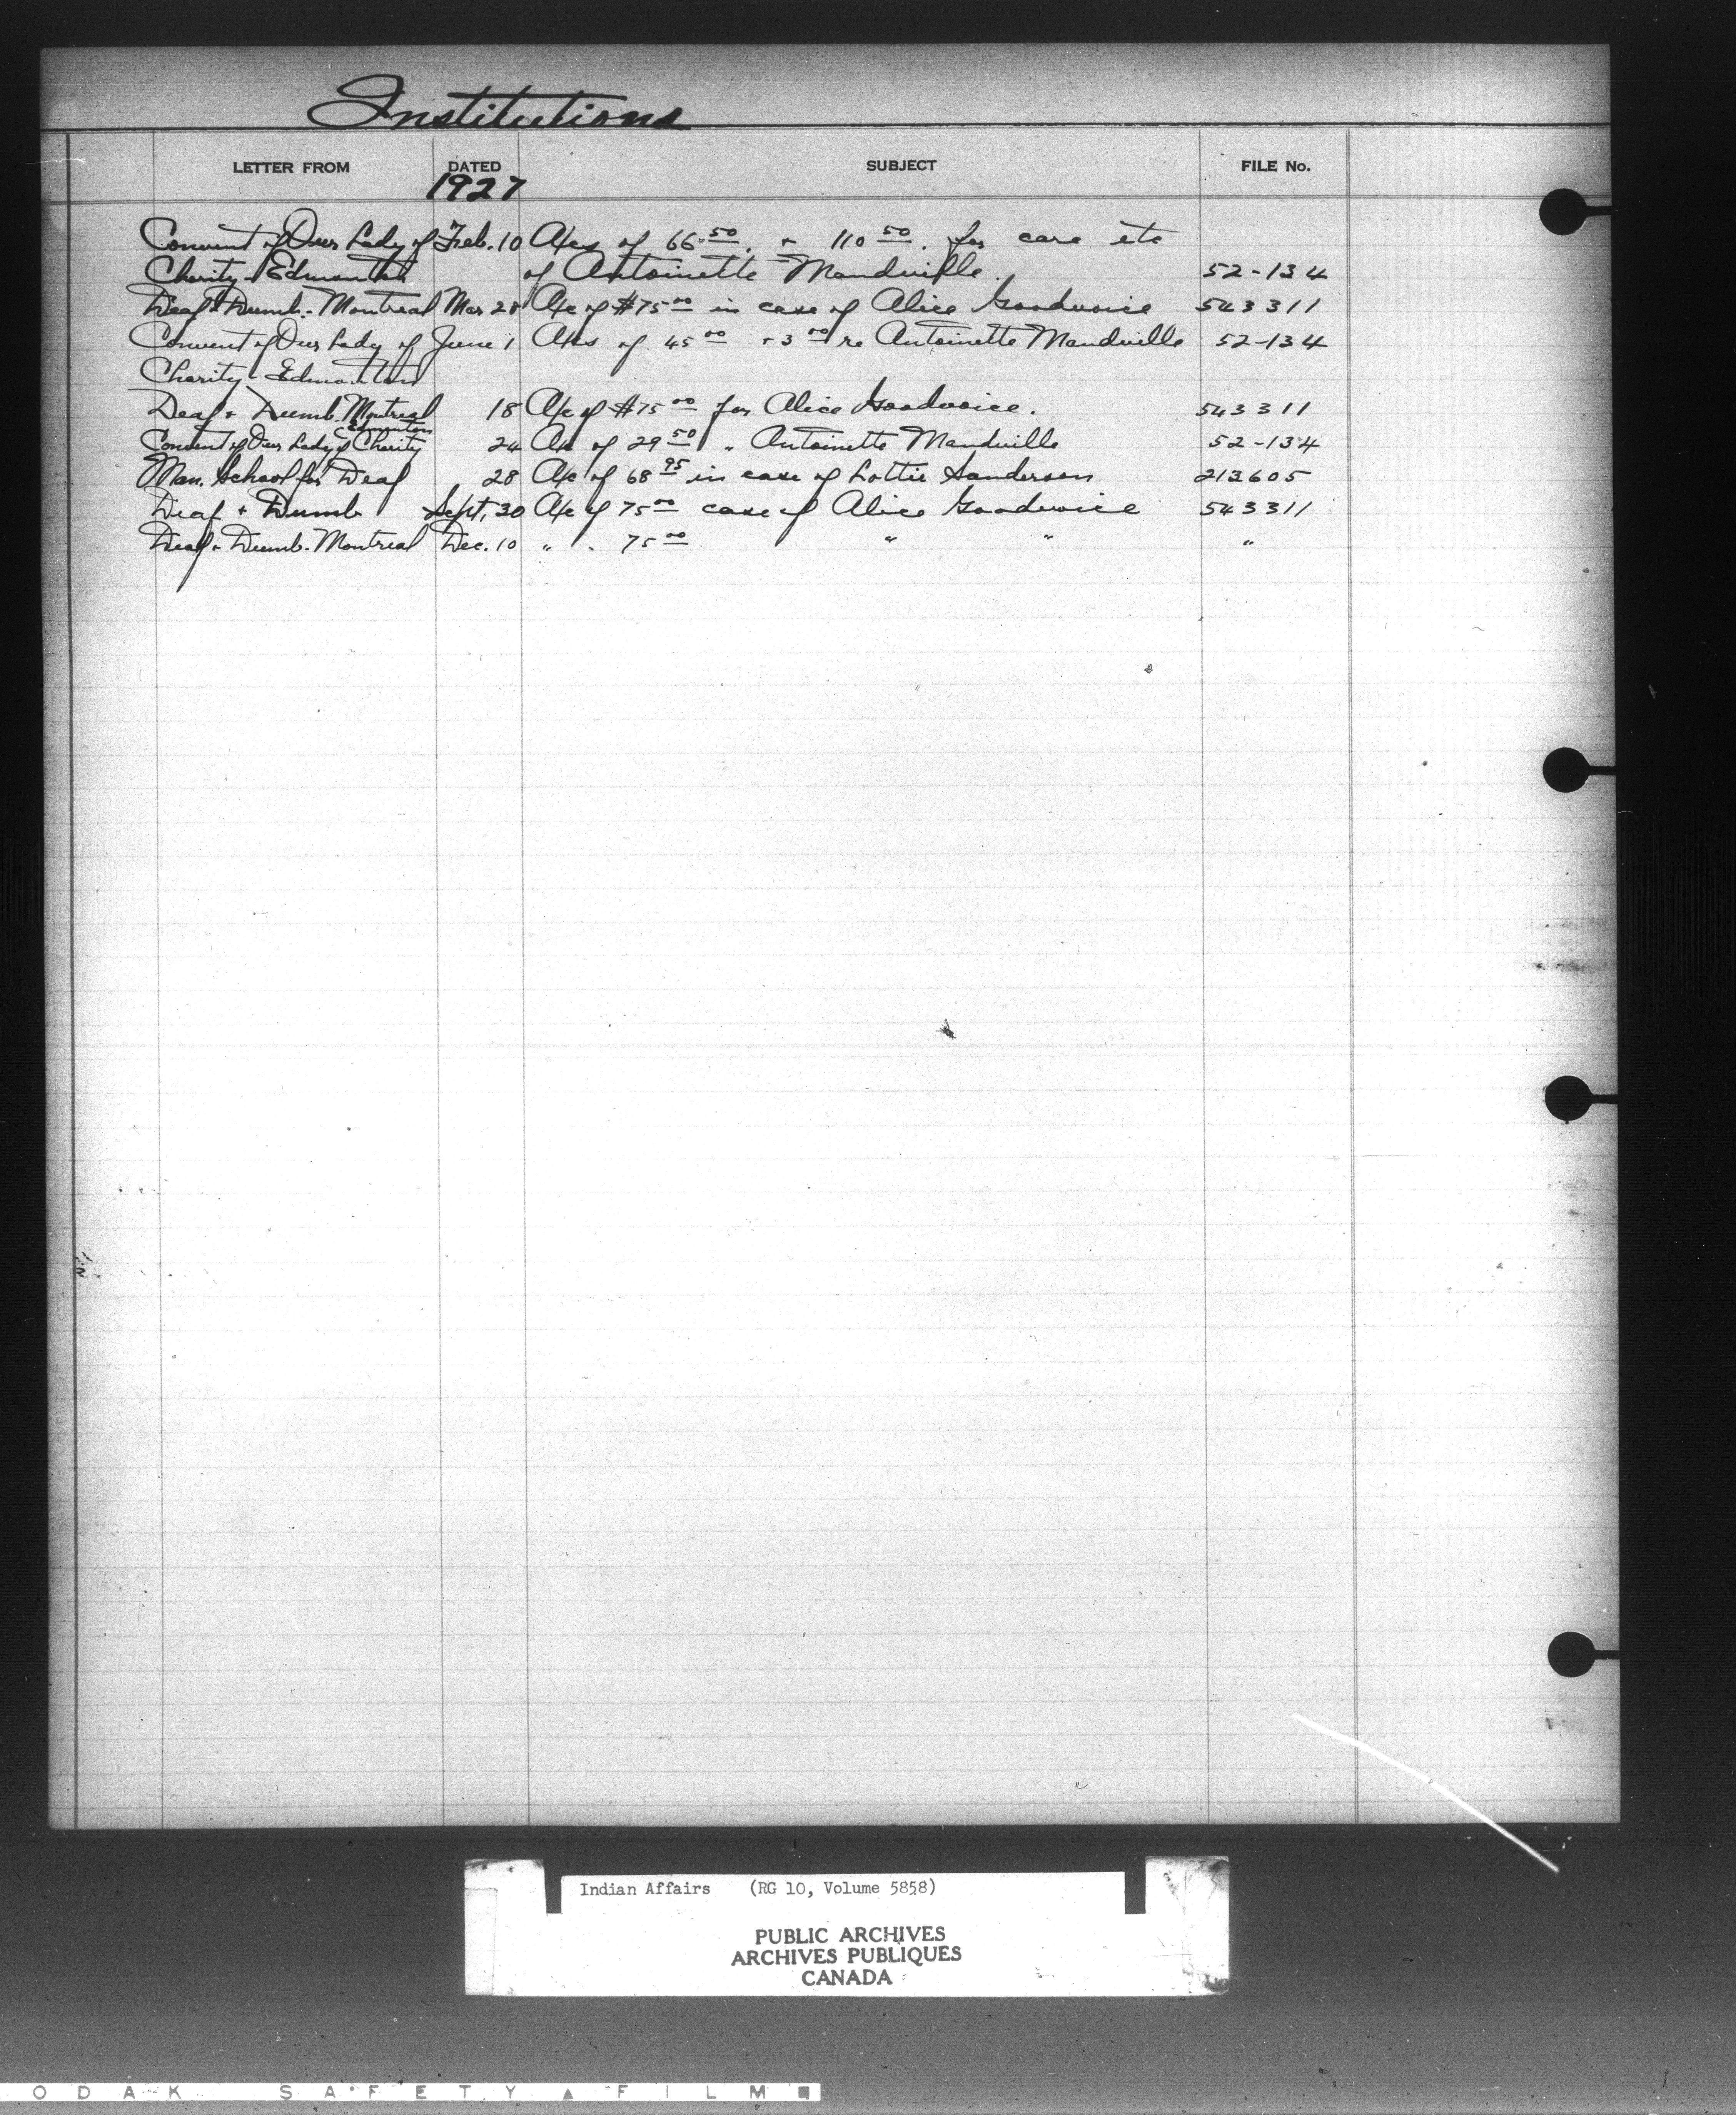 Institutions
LETTER FROM DATED SUBJECT FILE No.
1927
Convent of Our Lady of Feb. 10 A/cs of 66.50. + 110 50. for care etc
Charity - Edmonton of Antoinette Mandville. 52-134
Deaf & Dumb. - Montreal Mar 28 A/c of #75 00 in case of Alice Goodvoice 543311
Convent of Our Lady of June 1 A/cs of 45 00 + 3 00 re Antoinette Mandville 52-134
Charity - Edmonton
Deaf + Dumb. Montreal 18 A/c of #75 00 for Alice Goodvoice. 543311
Edmonton
Convent of Our Lady of Charity 24 A/c of 29 50 " Antoinette Mandville 52-134
Man. School for Deaf 28 A/c of 68 95 in case of Lottie Sanderson 213605
Deaf + Dumb Sept. 30 A/c of 75 00 case of Alice Goodvoice 543311
Deaf + Dumb - Montreal Dec. 10 " . 75 00 " " "
Indian Affairs (RG 10, Volume 5858)
PUBLIC ARCHIVES
ARCHIVES PUBLIQUES
CANADA
ODAK SAFETY ▲ FILM ■